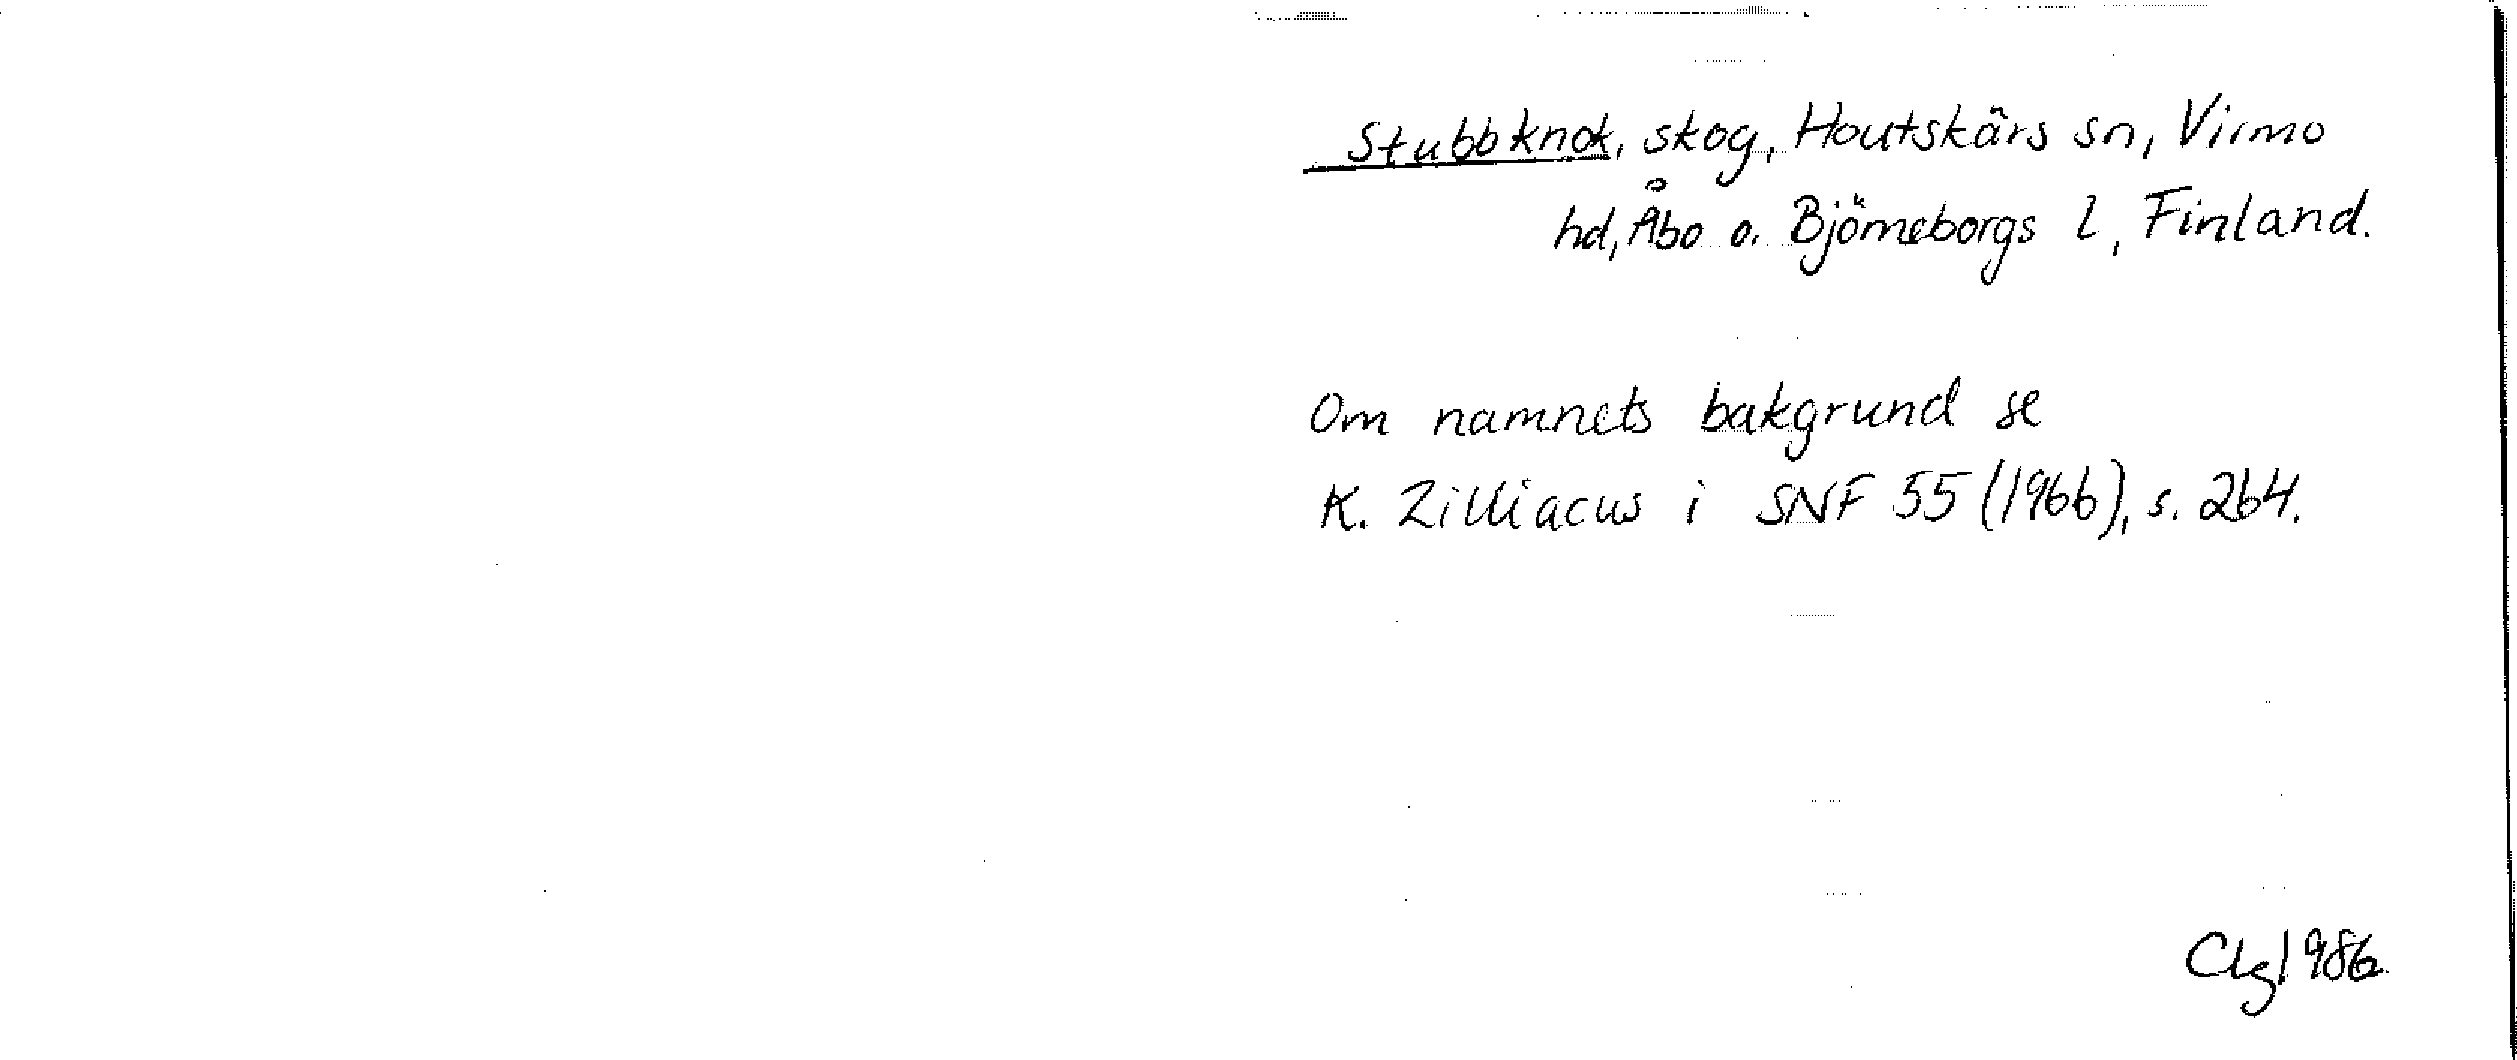 Stubbknok, skog, Houtskärs sn, Virmo
hd, Åbo o. Björneborgs l, Finland.
Om namnets bakgrund se
K. Zilliacus i SNF 55 (1966), s. 264.
1986